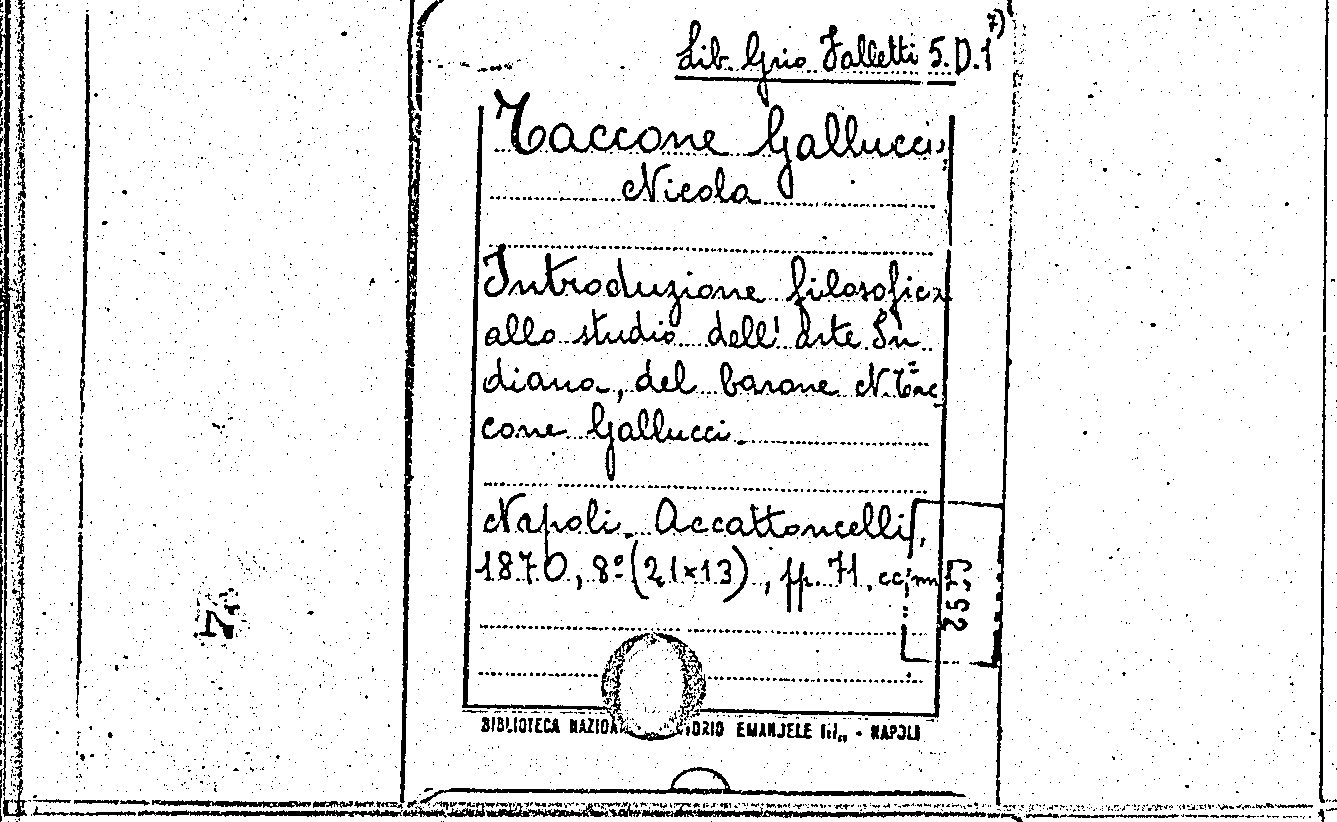 Lib. Grio Falletti 5.D.1 7)
Taccone Gallucci,
Nicola
Introduzione filosofica
allo studio dell'arte In
diana, del barone N. Tac
cone Gallucci.
Napoli. Accattoncelli,
1870, 8º (21×13), pp. 71.
BIBLIOTECA EMANUELE III„ - NAPOLI
7.